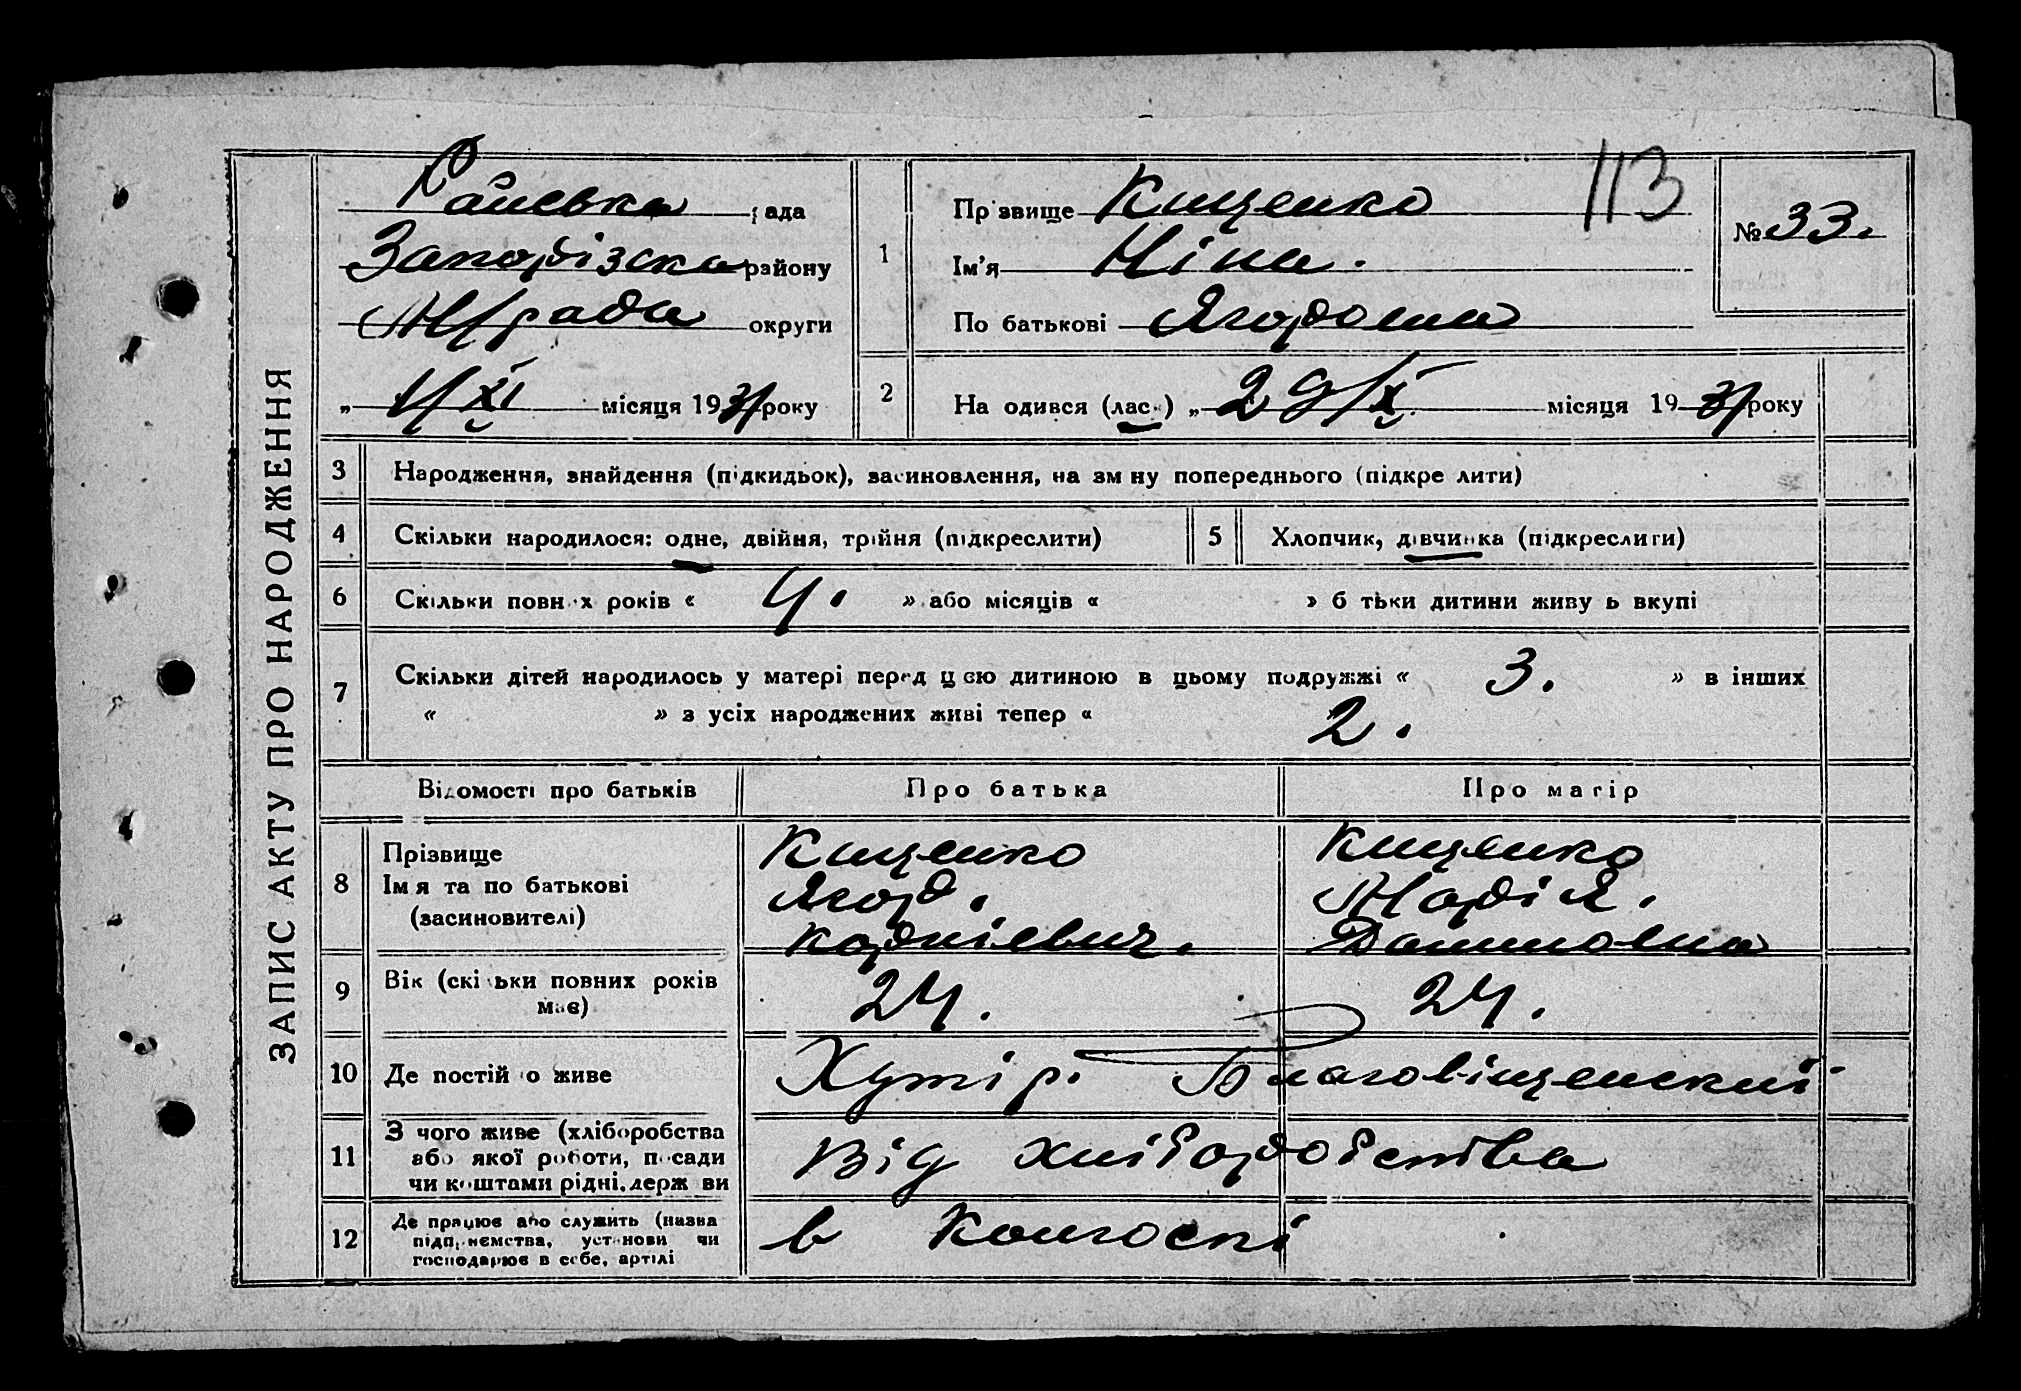 ЗАПИС АКТУ ПРО НАРОДЖЕННЯ
Раївська рада
Запорізска району
М/рада округи
„ 4/XI місяця 1931 року
113
1
Прізвище Кищенко
Ім'я Ніна.
По батькові Ягоровна
№ 33.
2
На одився (лась) „ 29/X місяця 1931 року
3 Народження, знайдення (підкидьок), засиновлення, на зм ну попереднього (підкре лити)
4 Скільки народилося: одне, двійня, трійня (підкреслити)
5 Хлопчик, дівчинка (підкреслити)
6 Скільки повних років « 4. » або місяців « » б тьки дитини живу ь вкупі
7 Скільки дітей народилось у матері перед цією дитиною в цьому подружжі « 3. » в інших
« » з усіх народжених живі тепер « 2.
Відомості про батьків Про батька Про матір
8 Прізвище
Імя та по батькові
(засиновителі)
Кищенко
Ягор.
Корнієвич.
Кищенко
Марія.
Даниловна
9 Вік (скільки повних років
має)
24. 24.
10 Де постійно живе Хутір. Благовіщенский
11 З чого живе (хліборобства
або якої роботи, посади
чи коштами рідні, держ ви
Від хліборобства
12 Де працює або служить (назва
підприємства, установи чи
господарює в себе, артілі
в Колгоспі